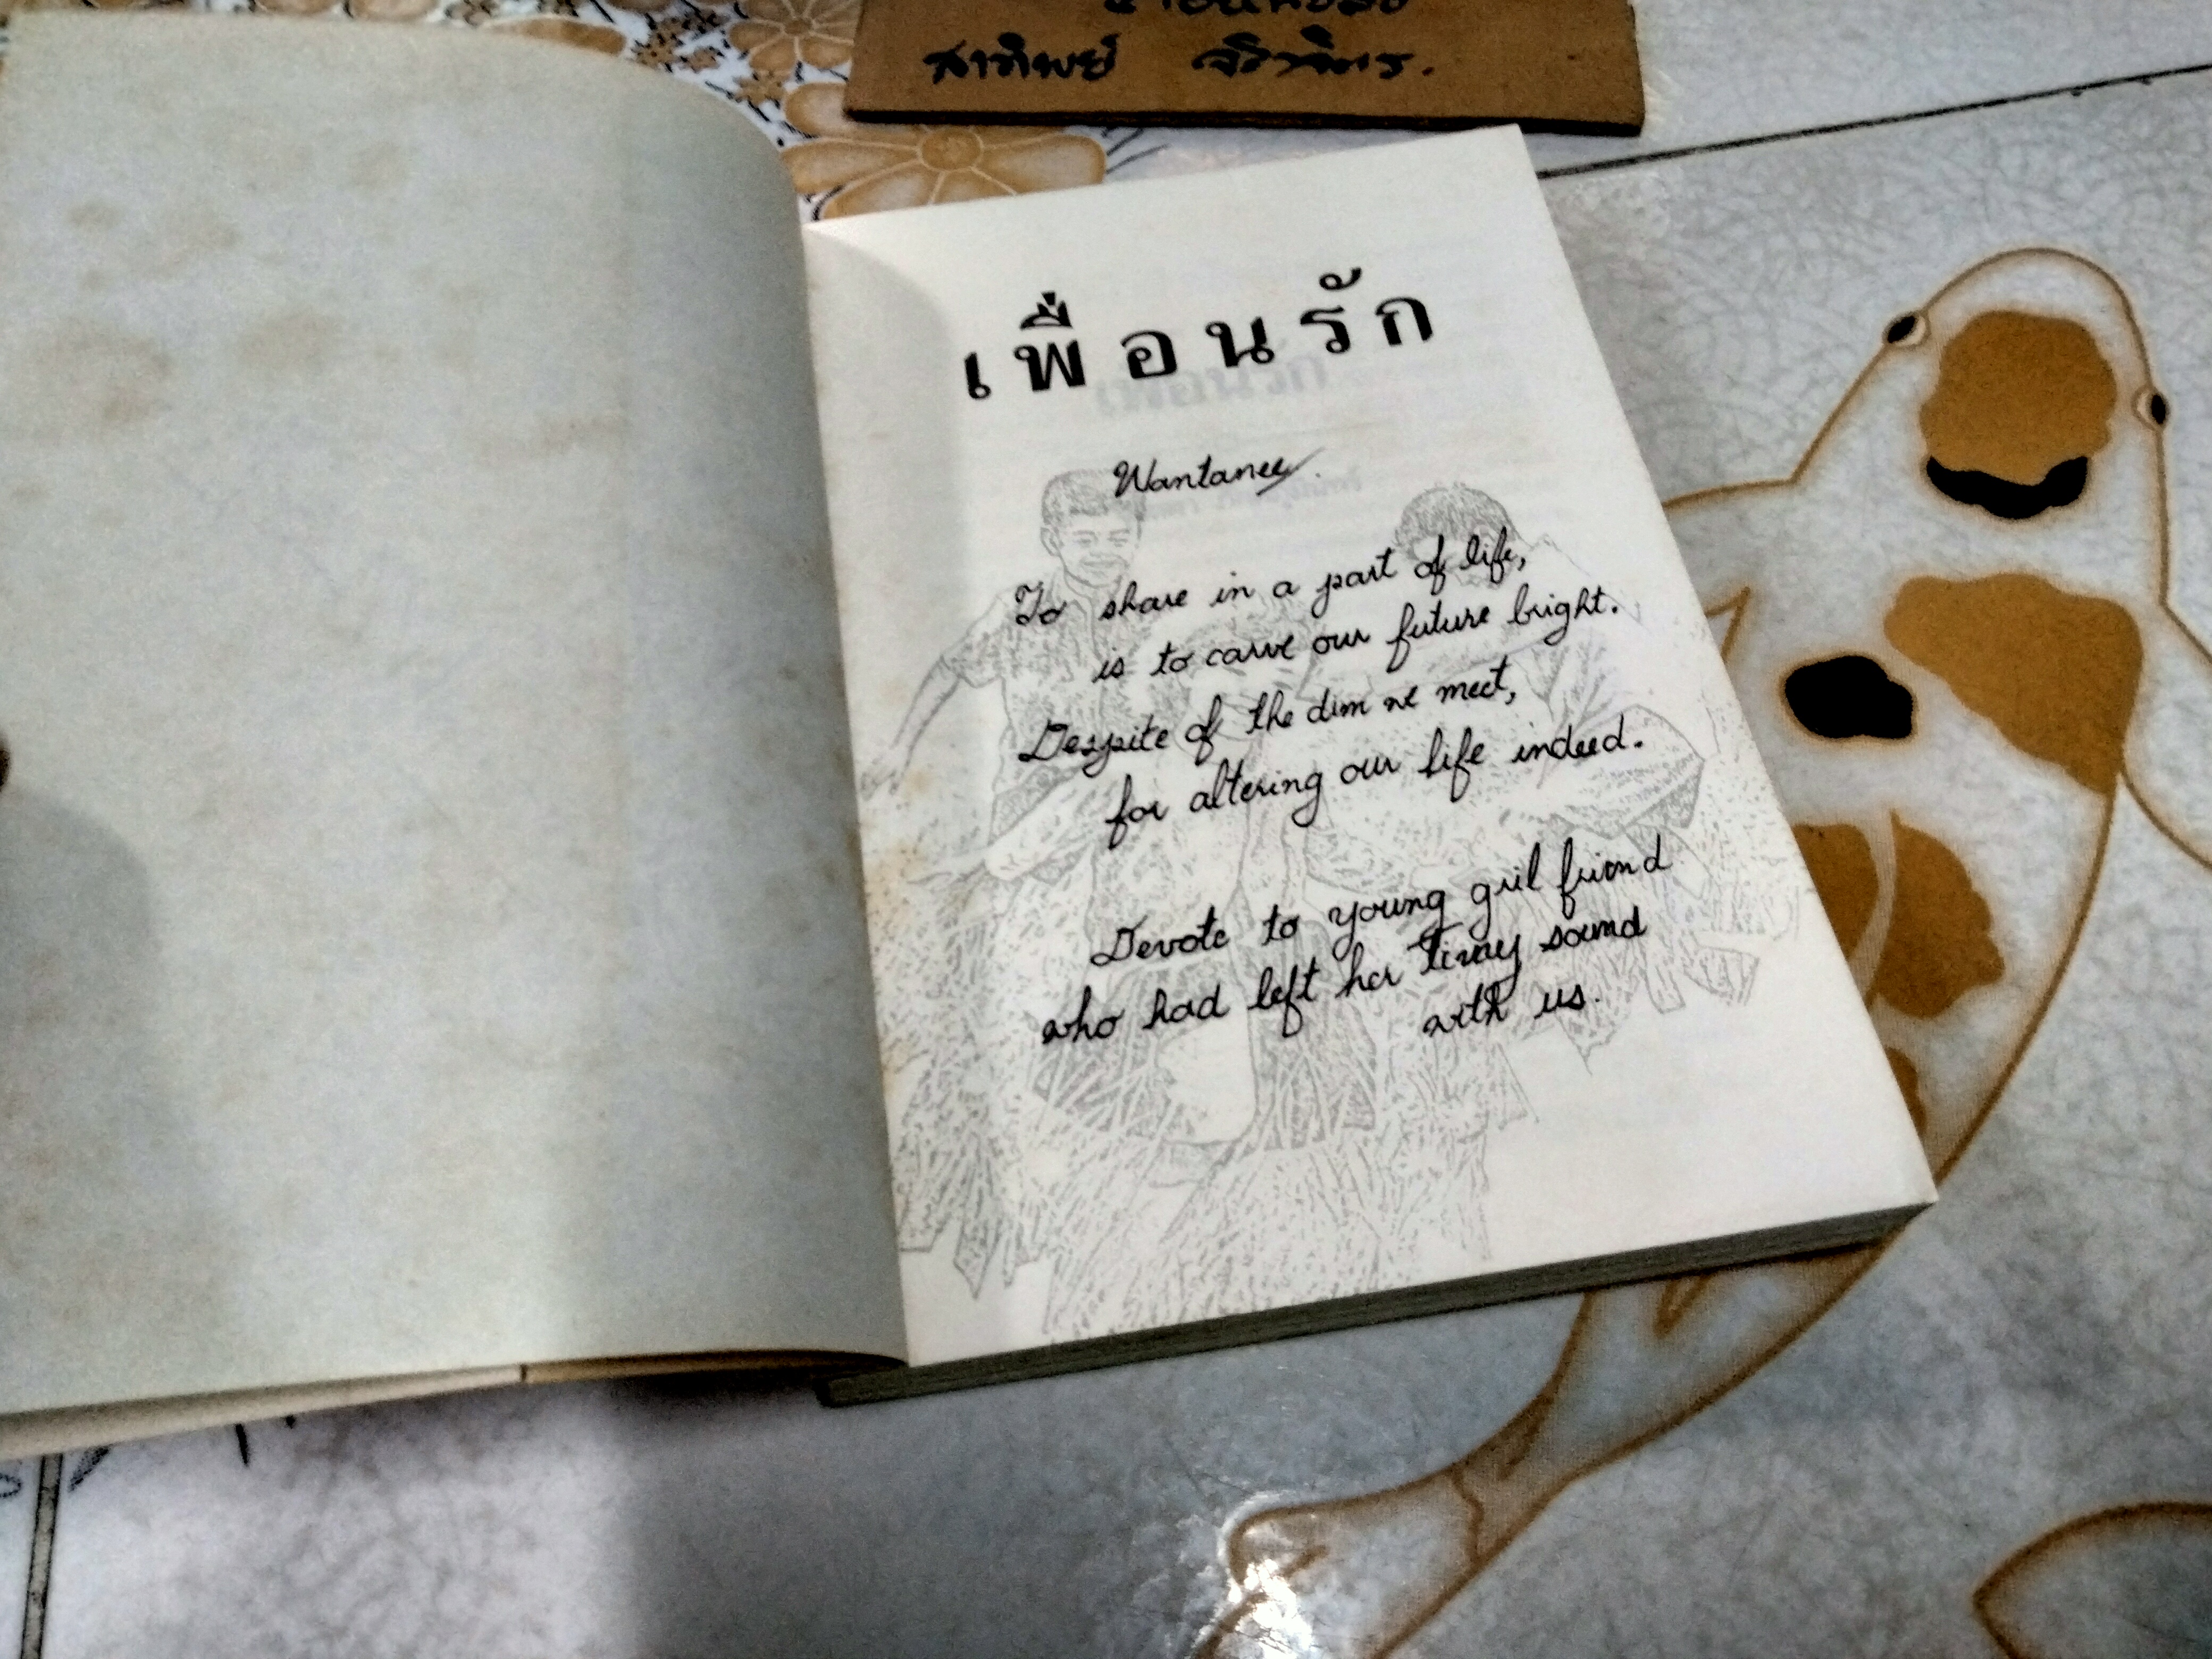 สาทิพย์
เพื่อนรัก
Wantanee
To share in a part of life,
is to carve our future bright.
Despite of the dim we meet,
for altering our life indeed.
Devote to young gril friend
who had left her tinny sound
with us.